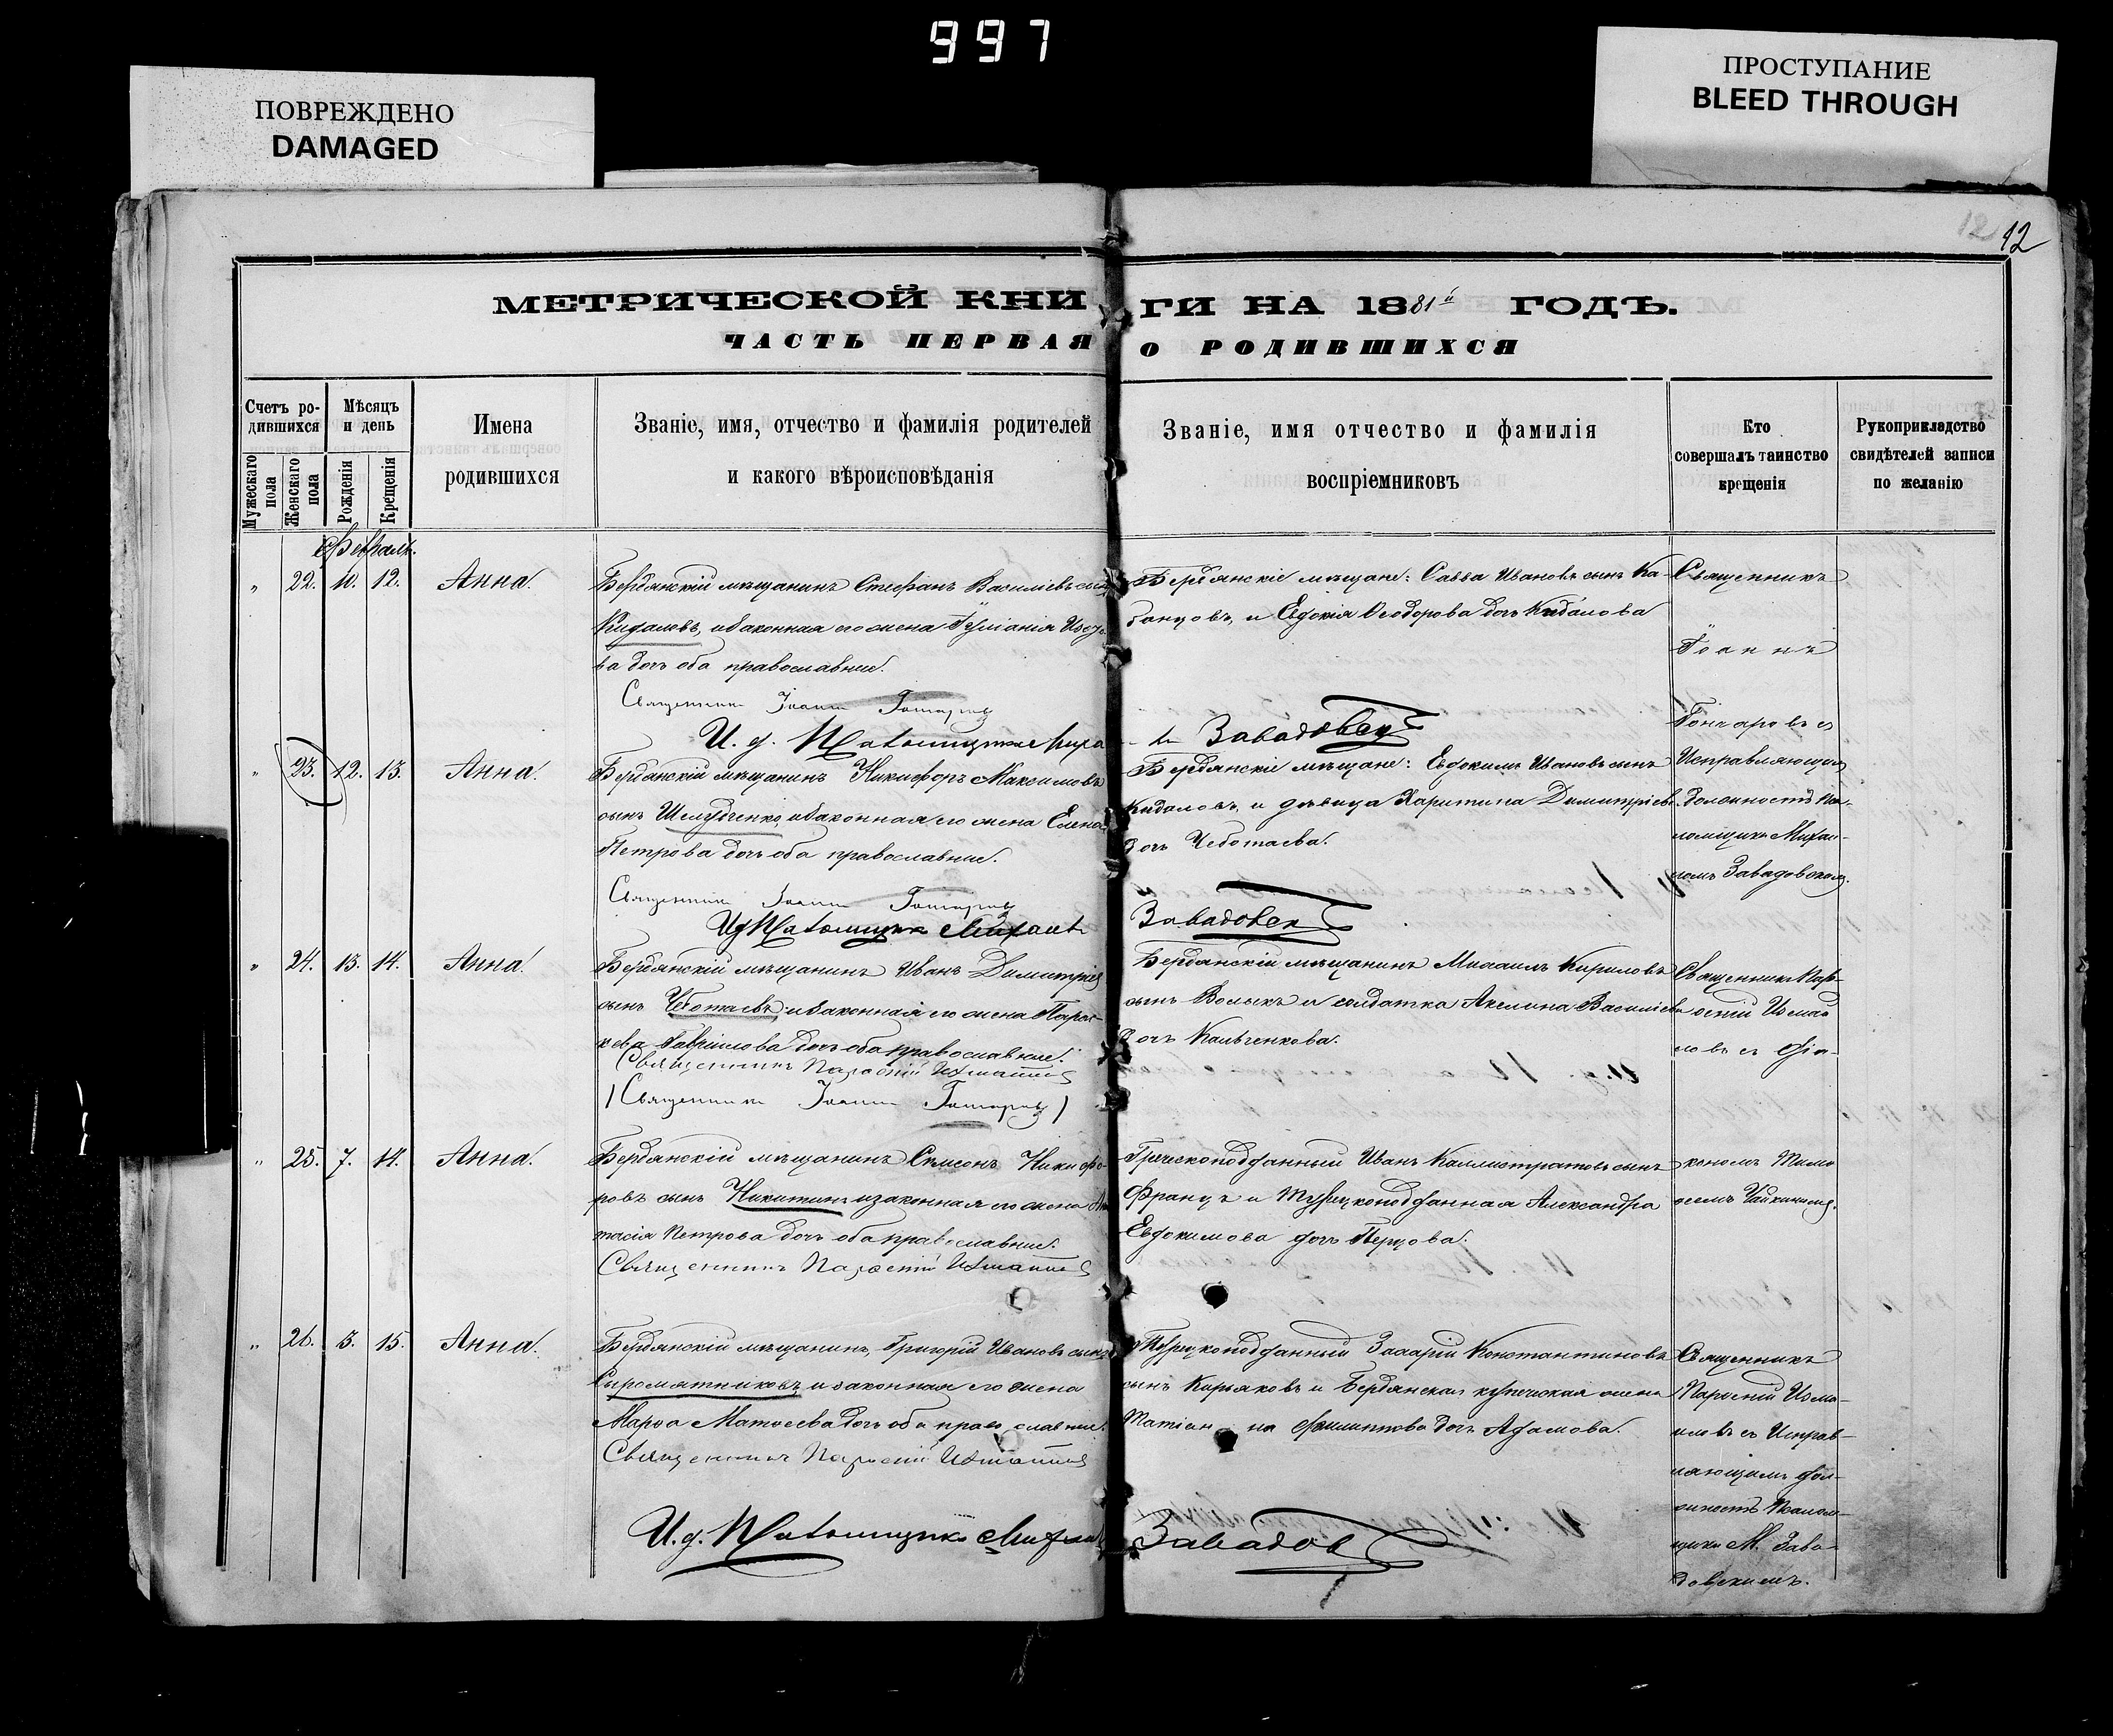 997
ПОВРЕЖДЕНО
DAMAGED
ПРОСТУПАНИЕ
BLEED THROUGH
12 12
МЕТРИЧЕСКОЙ КНИГИ НА 1881й ГОДЪ.
ЧАСТЬ ПЕРВАЯ О РОДИВШИХСЯ
Счетъ ро-
дившихся
Мужескаго пола
Женскаго пола
Мѣсяцъ
и день
Рожденія
Крещенія
Имена
родившихся
Званіе, имя, отчество и фамилія родителей
и какого вѣроисповѣданія
Званіе, имя отчество и фамилія
воспріемниковъ
Кто
совершалъ таинство
крещенія
Рукоприкладство
свидѣтелей записи
по желанію
Февраль.
„ 22. 10. 12. Анна.
Бердянскій мѣщанинъ Стефанъ Васильевъ сынъ
Кидаловъ, и законная его жена
ва дочь оба православные.
Священникъ Іоаннъ Гончаровъ
И. д. Псаломщика Миха
Бердянскіе мѣщане: Савва Ивановъ сынъ Ка-
банцовъ, и Евдокія Ѳеодорова дочь Кидалова
илъ Завадовск
Священникъ
Іоаннъ
Гончаровъ съ
Исправляющимъ
должность Пса-
ломщика Михаи-
ломъ Завадовскимъ.
„ 23. 12. 13. Анна.
Бердянскій мѣщанинъ Никифоръ Максимовъ
сынъ Шелудченко, и законная его жена Елена
Петрова дочь оба православные.
Священникъ Іоаннъ Гончаровъ
И д Псаломщика Михаилъ
Бердянскіе мѣщане: Евдокимъ Ивановъ сынъ
Кидаловъ, и дѣвица Харитина Димитріева
дочь Чеботаева.
Завадовск
„ 24. 13. 14. Анна.
Бердянскій мѣщанинъ Иванъ Димитріевъ
сынъ Чеботаевъ, и законная его жена Парас-
кева Гавріилова дочь оба православные.
Священникъ Парѳеній Измаиловъ
(Священникъ Іоаннъ Гончаровъ)
Бердянскій мѣщанинъ Михаилъ Кириловъ
сынъ Волыкъ и солдатка Акелина Василіева
дочь Кальченкова.
Священникъ Пар-
ѳеній Измаи
ловъ съ Діа-
кономъ Тимо
ѳеемъ Чайкинымъ.
„ 25. 7. 14. Анна.
Бердянскій мѣщанинъ Симеонъ Никифо-
ровъ сынъ Никитинъ и законная его жена Анас
тасія Петрова дочь оба православные.
Священникъ Парѳеній Измаиловъ
Греческоподданный Иванъ Каллистратовъ сынъ
Францъ и Турецкоподданная Александра
Евдокимова дочь Перцова.
„ 26. 3. 15. Анна.
Бердянскій мѣщанинъ, Григорій Ивановъ сынъ
Сыромятниковъ и законная его жена
Марѳа Матѳеева дочь оба православные.
Священникъ Парѳеній Измаиловъ
И. д. Псаломщика Михаилъ
Турецкоподданный Захарій Константиновъ
сынъ Кирьяковъ и Бердянская купеческая жена
Татіана Филиппова дочь Адамова.
Завадов
Священникъ
Парѳеній Изма-
иловъ съ Исправ-
ляющимъ дол-
жность Псалом-
щика М. Зава-
довскимъ.